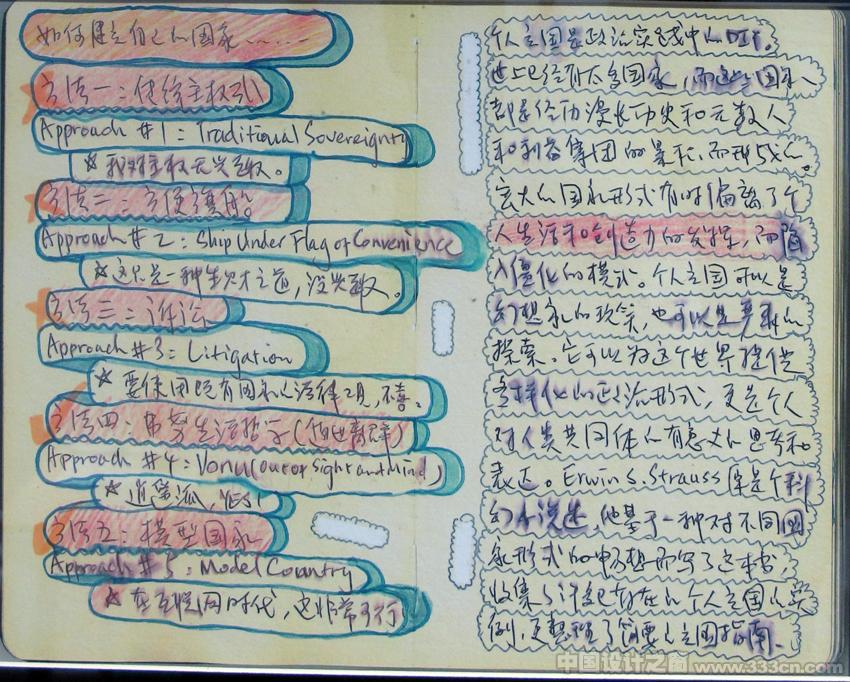 如何建立自己的国家……
方法一：传统主权式
Approach #1: Traditional Sovereignty
★我对主权无兴致。
方法二：方便旗船
Approach # 2: Ship Under Flag of Convenience
★这只是一种生财之道，没兴致。
方法三：诉讼
Approach #3: Litigation
★要使用既有国家的法律工具，不喜。
方法四：弗努生活哲学(
Approach # 4: Vonu(out of Sight and Mind)
★逍遥派，
方法五：模型国家
Approach # 5: Model Country
★在互联网时代，这非常可行
个人立国是政治实践中的DIY。
世上已经有太多国家，而这些国家
都是经历漫长历史和无数人
和利益集团的累积，而形成的。
宏大的国家形式有时偏离了个
人生活和创造力的发挥，而陷
入僵化的模式。个人立国可以是
幻想家的玩笑，也可以是严肃的
探索。它可以为这个世界提供
多样化的政治形式，更是个人
对人类共同体的有意义的思考和
表达。Erwin S. Strauss 像是个科
幻小说迷，他基于一种对不同国
家形式的畅想而写了这本书，
收集了许记存在的个人立国的实
例，更整理了简要的立国指南。
中国设计之窗 www.333cn.com